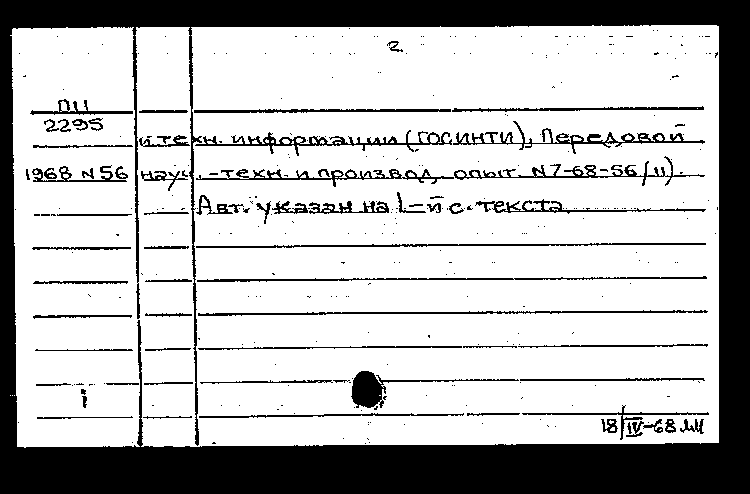 2
ПЦ
2295
и техн. информации (ГОСИНТИ), Передовой
1968 N56 науч.-техн. и производ. опыт. N7-68-56/11).
Авт. указан на 1-й с. текста.
i
18/IV-68